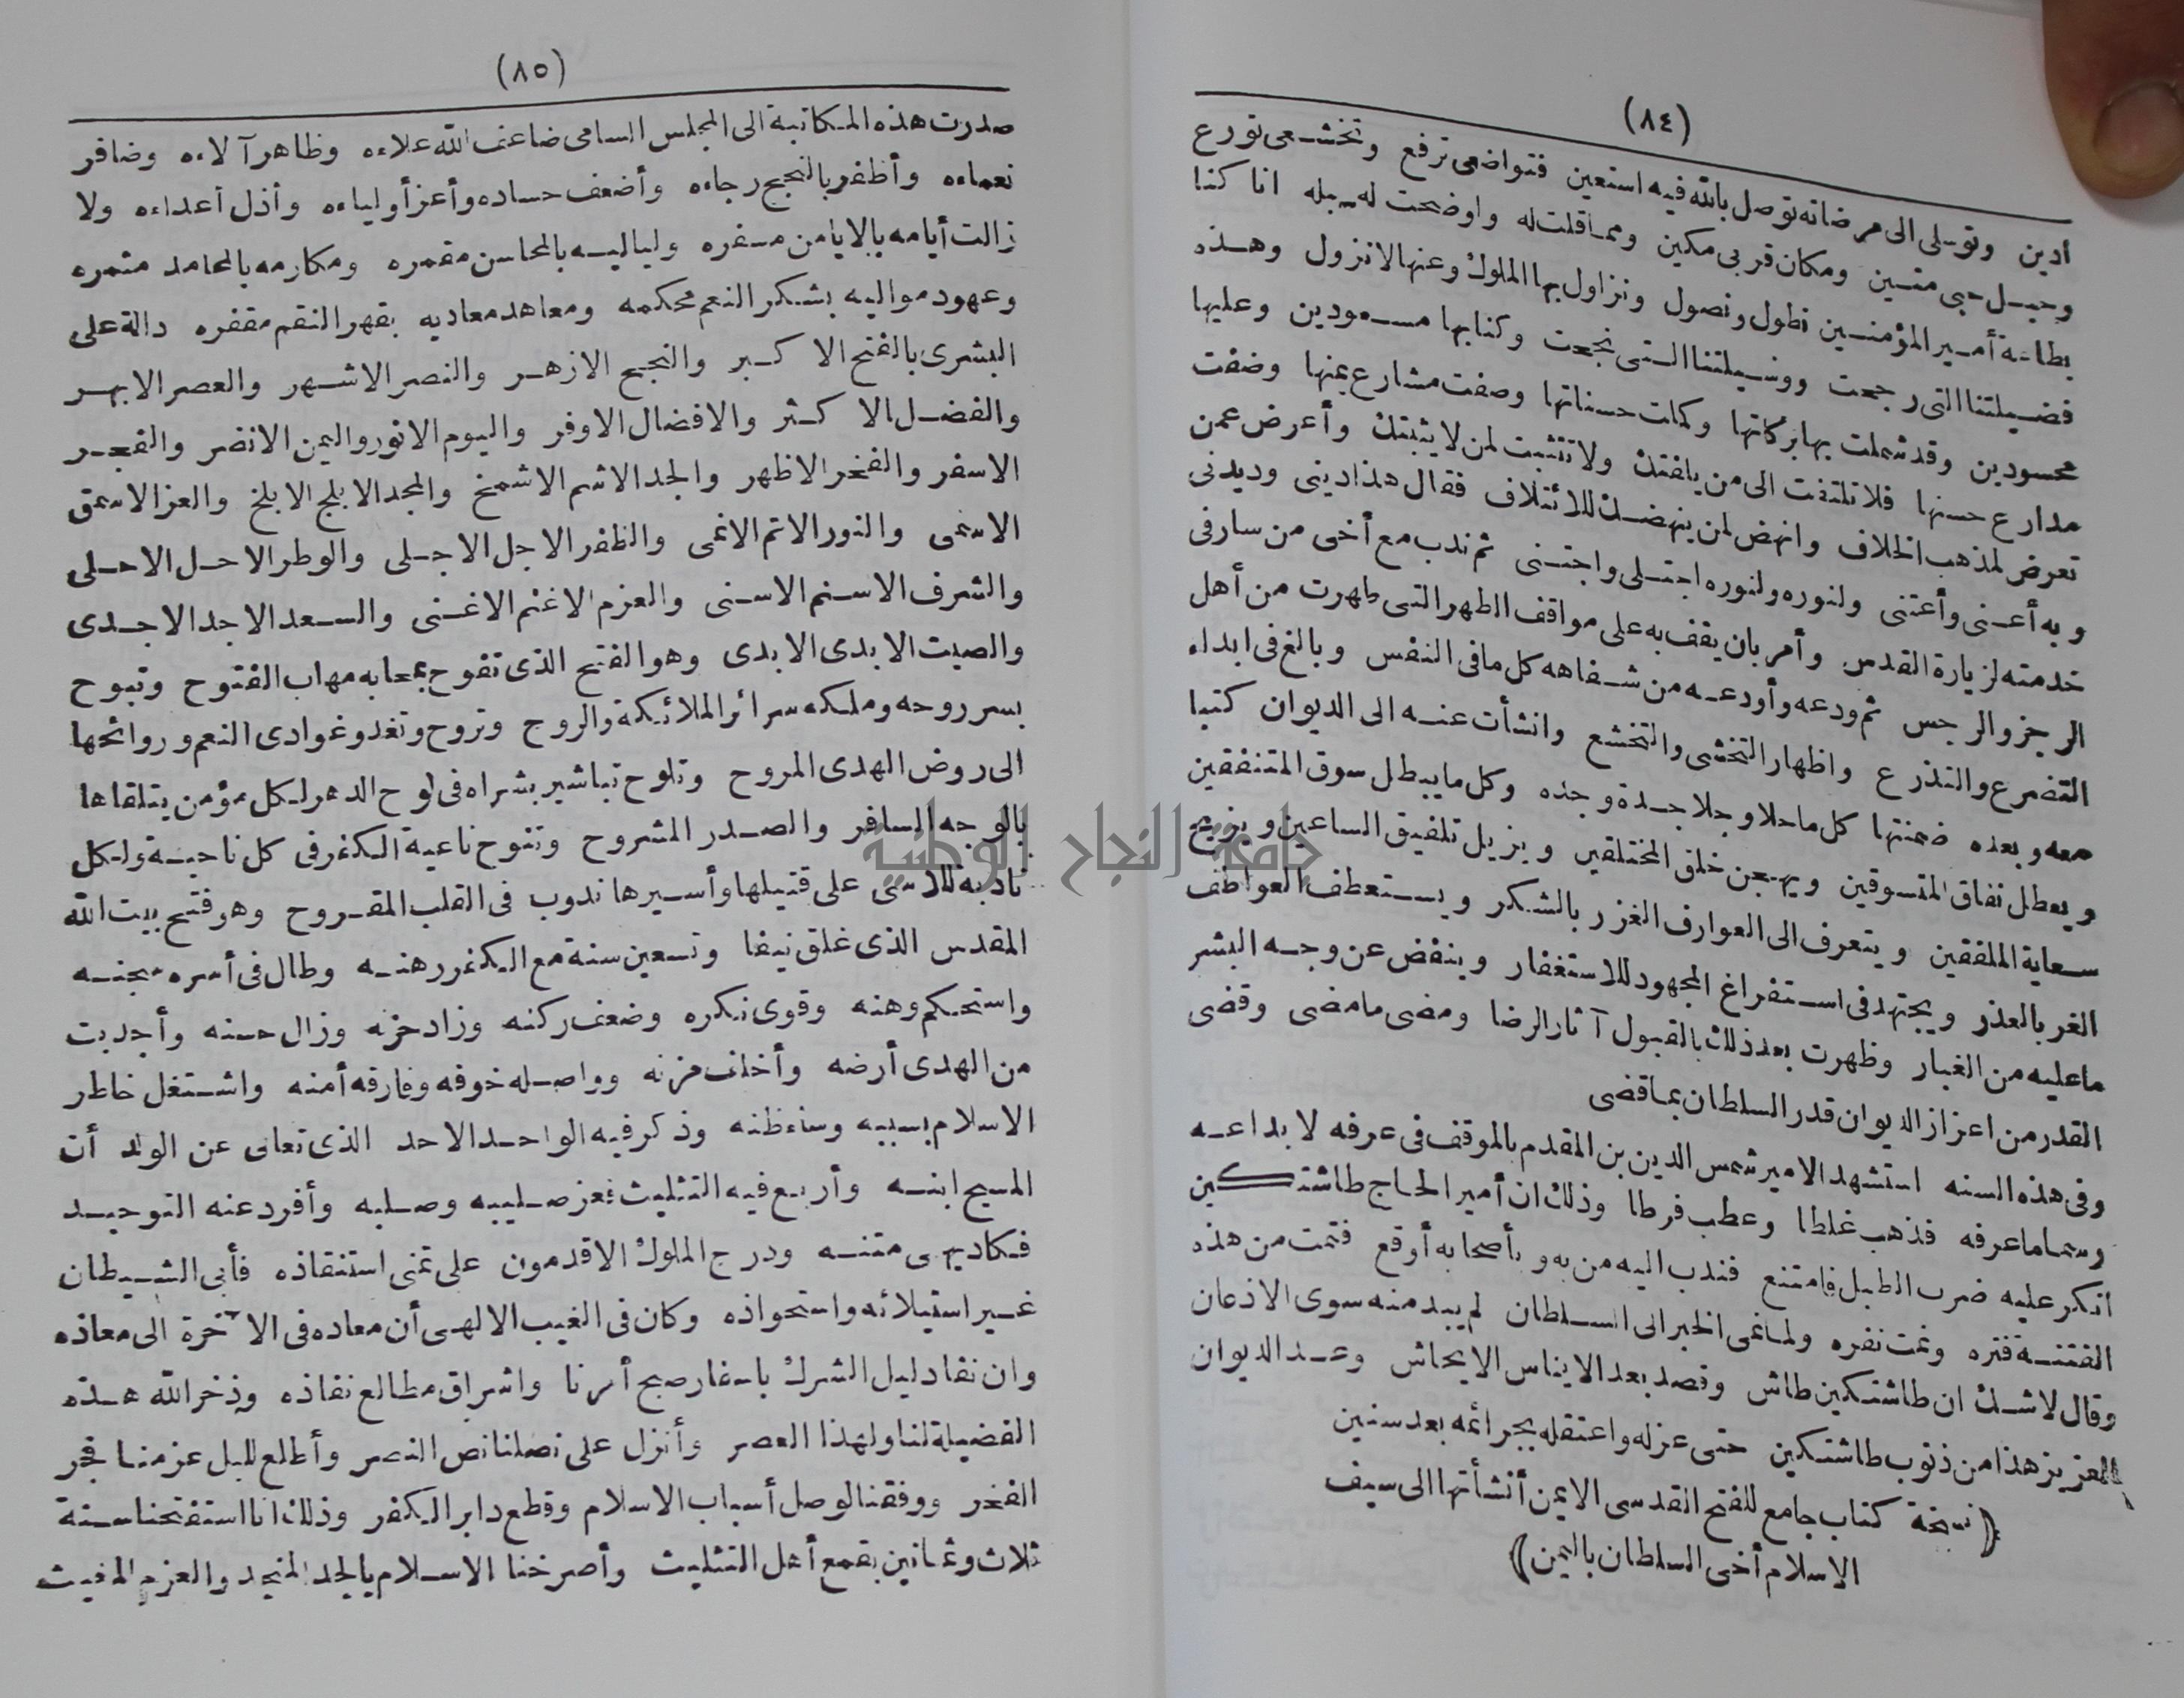 (٨٤)
أدين وتوسلى الى مرضاته توصل بالله فيه استعين فتواضعى ترفع وتخشعى تورع
وحبل حبى متين ومكان قربى مكين ومما قلت له واوضحت له سبله انا كنا
بطاعة أمير المؤمنين نطول ونصول ونزاول بها الملوك وعنها لا نزول وهذه
فضيلتنا التى رجحت ووسيلتنا التى نجحت وكنا بها مسعودين وعليها
محسودين وقد شملت بها بركاتها وكملت حسناتها وصفت مشارع يمنها وضفت
مدارع حسنها فلا تلتفت الى من يلفتك ولا تتثبت لمن لا يثبتك وأعرض عمن
تعرض لمذهب الخلاف وانهض لمن ينهضك للائتلاف فقال هذا دينى وديدنى
وبه أعنى وأعتنى ولنوره ولنوره اجتلى واجتنى ثم ندب مع أخى من سار فى
خدمته لزيارة القدس وأمر بان يقف به على مواقف الطهر التى طهرت من أهل
الرجز والرجس ثم ودعه وأودعه من شفاهه كل ما فى النفس وبالغ فى ابداء
التضرع والتذرع واظهار التخشى والتخشع وانشأت عنه الى الديوان كتبا
معه وبعده ضمنتها كل ما حلا وجلا جدة وجده وكل ما يبطل سوق المتنفقين
ويعطل نفاق المتسوقين ويهجن خلق المختلقين ويزيل تلفيق الساعين ويزيح
سعاية الملفقين ويتعرف الى العوارف الغزر بالشكر ويستعطف العواطف
الغر بالعذر ويجتهد فى استفراغ المجهود للاستغفار وينفض عن وجه البشر
ما عليه من الغبار وظهرت بعد ذلك بالقبول آثار الرضا ومضى ما مضى وقضى
القدر من اعزاز الديوان قدر السلطان بما قضى
وفى هذه السنه استشهد الامير شمس الدين بن المقدم بالموقف فى عرفه لا بداعه
وسما ما عرفه فذهب غلطا وعطب فرطا وذلك ان أمير الحاج طاشتكين
أنكر عليه ضرب الطبل فامتنع فندب اليه من به وبأصحابه أوقع فتمت من هذه
الفتنة فتره ونمت نفره ولما نمى الخبر الى السلطان لم يبد منه سوى الاذعان
وقال لا شك ان طاشتكين طاش وقصد بعد الايناس الايحاش وعد الديوان
العزيز هذا من ذنوب طاشتكين حتى عزله واعتقله بجرائمه بعد سنين
(نسخة كتاب جامع للفتح القدسى الايمن أنشأتها الى سيف
الاسلام أخى السلطان باليمن)
(٨٥)
صدرت هذه المكاتبة الى المجلس السامى ضاعف الله علاءه وظاهر آلاءه وضافر
نعماءه وأظفر بالنجح رجاءه وأضعف حساده وأعز أولياءه وأذل أعداءه ولا
زالت أيامه بالايامن مسفره ولياليه بالمحاسن مقمره ومكارمه بالمحامد مثمره
وعهود مواليه بشكر النعم محكمه ومعاهد معاديه بقهر النقم مقفره دالة على
البشرى بالفتح الاكبر والنجح الازهر والنصر الاشهر والعصر الابهر
والفضل الاكثر والافضال الاوفر واليوم الانور واليمن الانضر والفجر
الاسفر والفخر الاظهر والجد الاشم الاشمخ والمجد الابلج الابلخ والعز الاسمق
الاسمى والنور الاتم الانمى والظفر الاجل الاجلى والوطر الاحل الاحلى
والشرف الاسنم الاسنى والعزم الاغنم الاغنى والسعد الاجد الاجدى
والصيت الابدى الابدى وهو الفتح الذى تفوح بمحابه مهاب الفتوح وتبوح
بسر روحه وملكه سرائر الملائكة والروح وتروح وتغدو غوادى النعم وروائحها
الى روض الهدى المروح وتلوح تباشير بشراه فى لوح الدهر لكل مؤمن يتلقاها
بالوجه السافر والصدر المشروح وتنوح ناعية الكفر فى كل ناحية ولكل
نادبة للاسى على قتيلها وأسيرها ندوب فى القلب المقروح وهو فتح بيت الله
المقدس الذى غلق نيفا وتسعين سنة مع الكفر رهنه وطال فى أسره سجنه
واستحكم وهنه وقوى نكره وضعف ركنه وزاد حزنه وزال حسنه وأجدبت
من الهدى أرضه وأخلف مزنه وواصله خوفه وفارقه أمنه واشتغل خاطر
الاسلام بسببه وساء ظنه وذكر فيه الواحد الاحد الذى تعالى عن الولد أن
المسيح ابنه وأربع فيه التثليث فعز صليبه وصلبه وأفرد عنه التوحيد
فكاد يهى متنه ودرج الملوك الاقدمون على تمنى استنقاذه فأبى الشيطان
غير استيلائه واستحواذه وكان فى الغيب الالهى أن معاده فى الآخرة الى معاذه
وان نفاد ليل الشرك باسفار صبح أمرنا واشراق مطالع نفاذه وذخر الله هذه
الفضيلة لنا ولهذا العصر وأنزل على نصلنا نص النصر وأطلع لليل عزمنا فجر
الفخر ووفقنا لوصل أسباب الاسلام وقطع دابر الكفر وذلك انا استفتحنا سنة
ثلاث وثمانين بقمع أهل التثليث وأصرخنا الاسلام بالجد المنجد والعزم المغيث
جامعة النجاح الوطنية